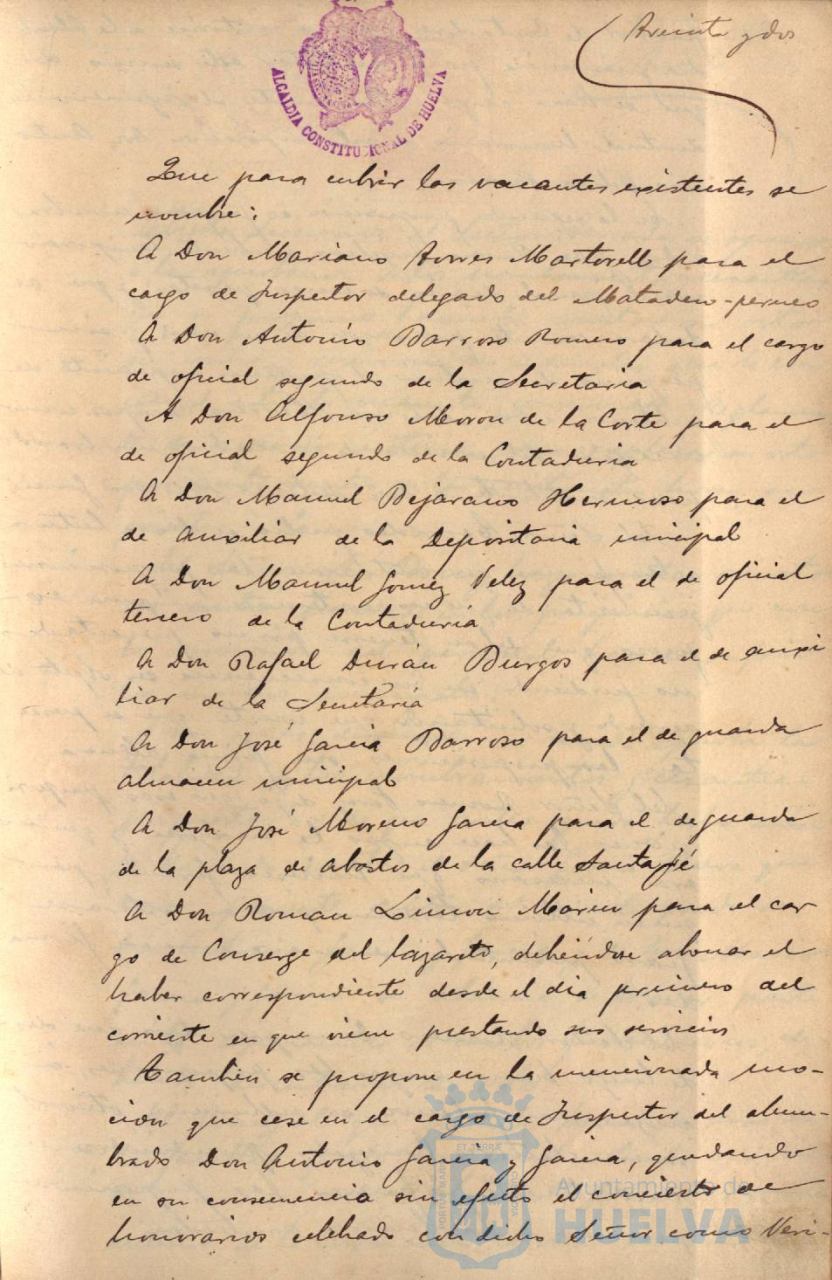 Treinta y dos
ALCALDIA CONSTITUCIONAL DE HUELVA
Que para cubrir las vacantes existentes se
nombre:
A Don Mariano Torres Martorell para el
cargo de Inspector delegado del Matadero-perneo
A Don Antonio Barroso Romero para el cargo
de oficial segundo de la Secretaria
A Don Alfonso Moron de la Corte para el
de oficial segundo de la Contaduria
A Don Manuel Bejarano Hermoso para el
de auxiliar de la Depositaria municipal
A Don Manuel Gomez Velez para el de oficial
tercero de la Contaduría
A Don Rafael Durán Burgos para el de auxi
liar de la Secretaría
A Don José Garcia Barroso para el de guarda
almacen municipal
A Don José Moreno Garcia para el de guarda
de la plaza de abastos de la calle Santa fé
A Don Roman Limon Marin para el car
go de Conserge del lazareto, debiéndose abonar el
haber correspondiente desde el dia primero del
corriente en que viene prestando sus servicios
Tambien se propone en la mencionada mo-
cion que cese en el cargo de Inspector del alum-
brado Don Antonio Garcia y Garcia, quedando
en su consecuencia sin efecto el concierto de
honorarios celebrado con dicho Señor como Veri-
Ayuntamiento de
HUELVA